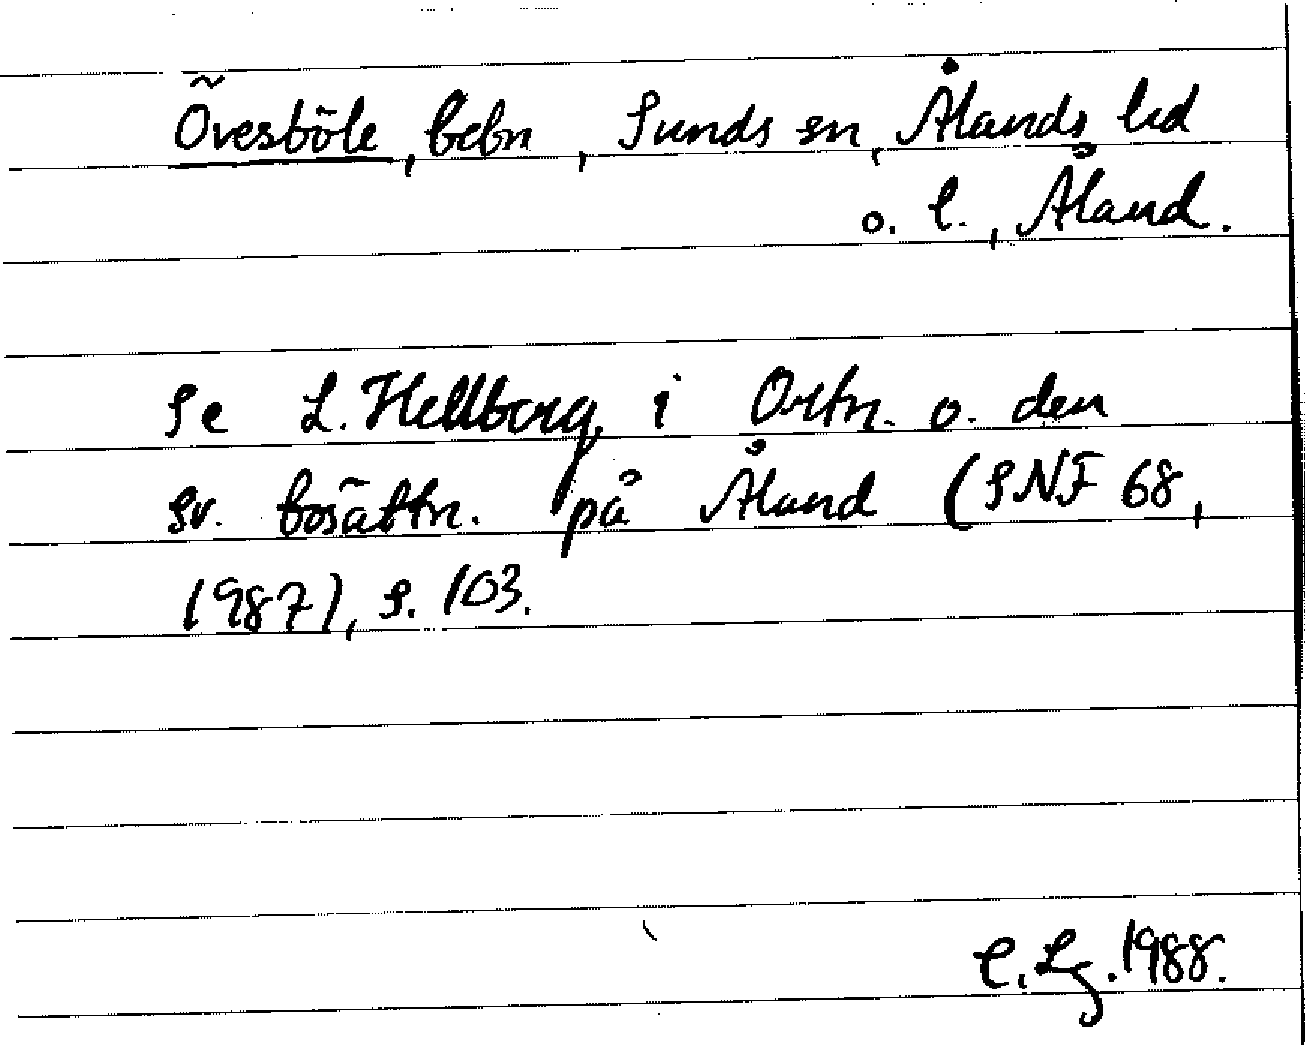 Övesböle, bebn, Sunds sn, Ålands hd
o. l., Åland.
Se L. Hellberg i Ortn. o. den
sv. bosättn. på Åland (SNF 68,
1987), s. 103.
C. Lg. 1988.